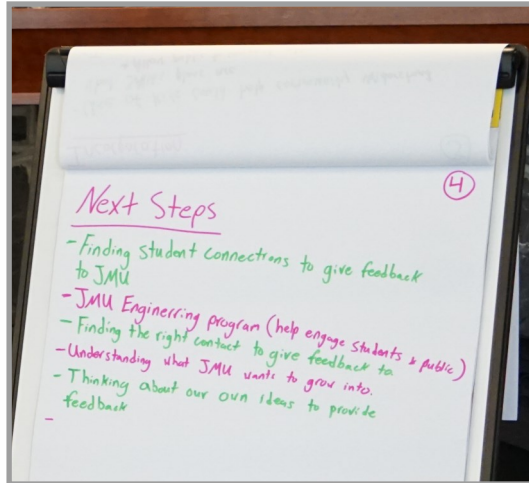 4
Next Steps
- Finding student connections to give feedback
to JMU
- JMU Enginerring program (help engage students & public)
- Finding the right contact to give feedback to
- Understanding what JMU wants to grow into.
- Thinking about our own ideas to provide
feedback
-